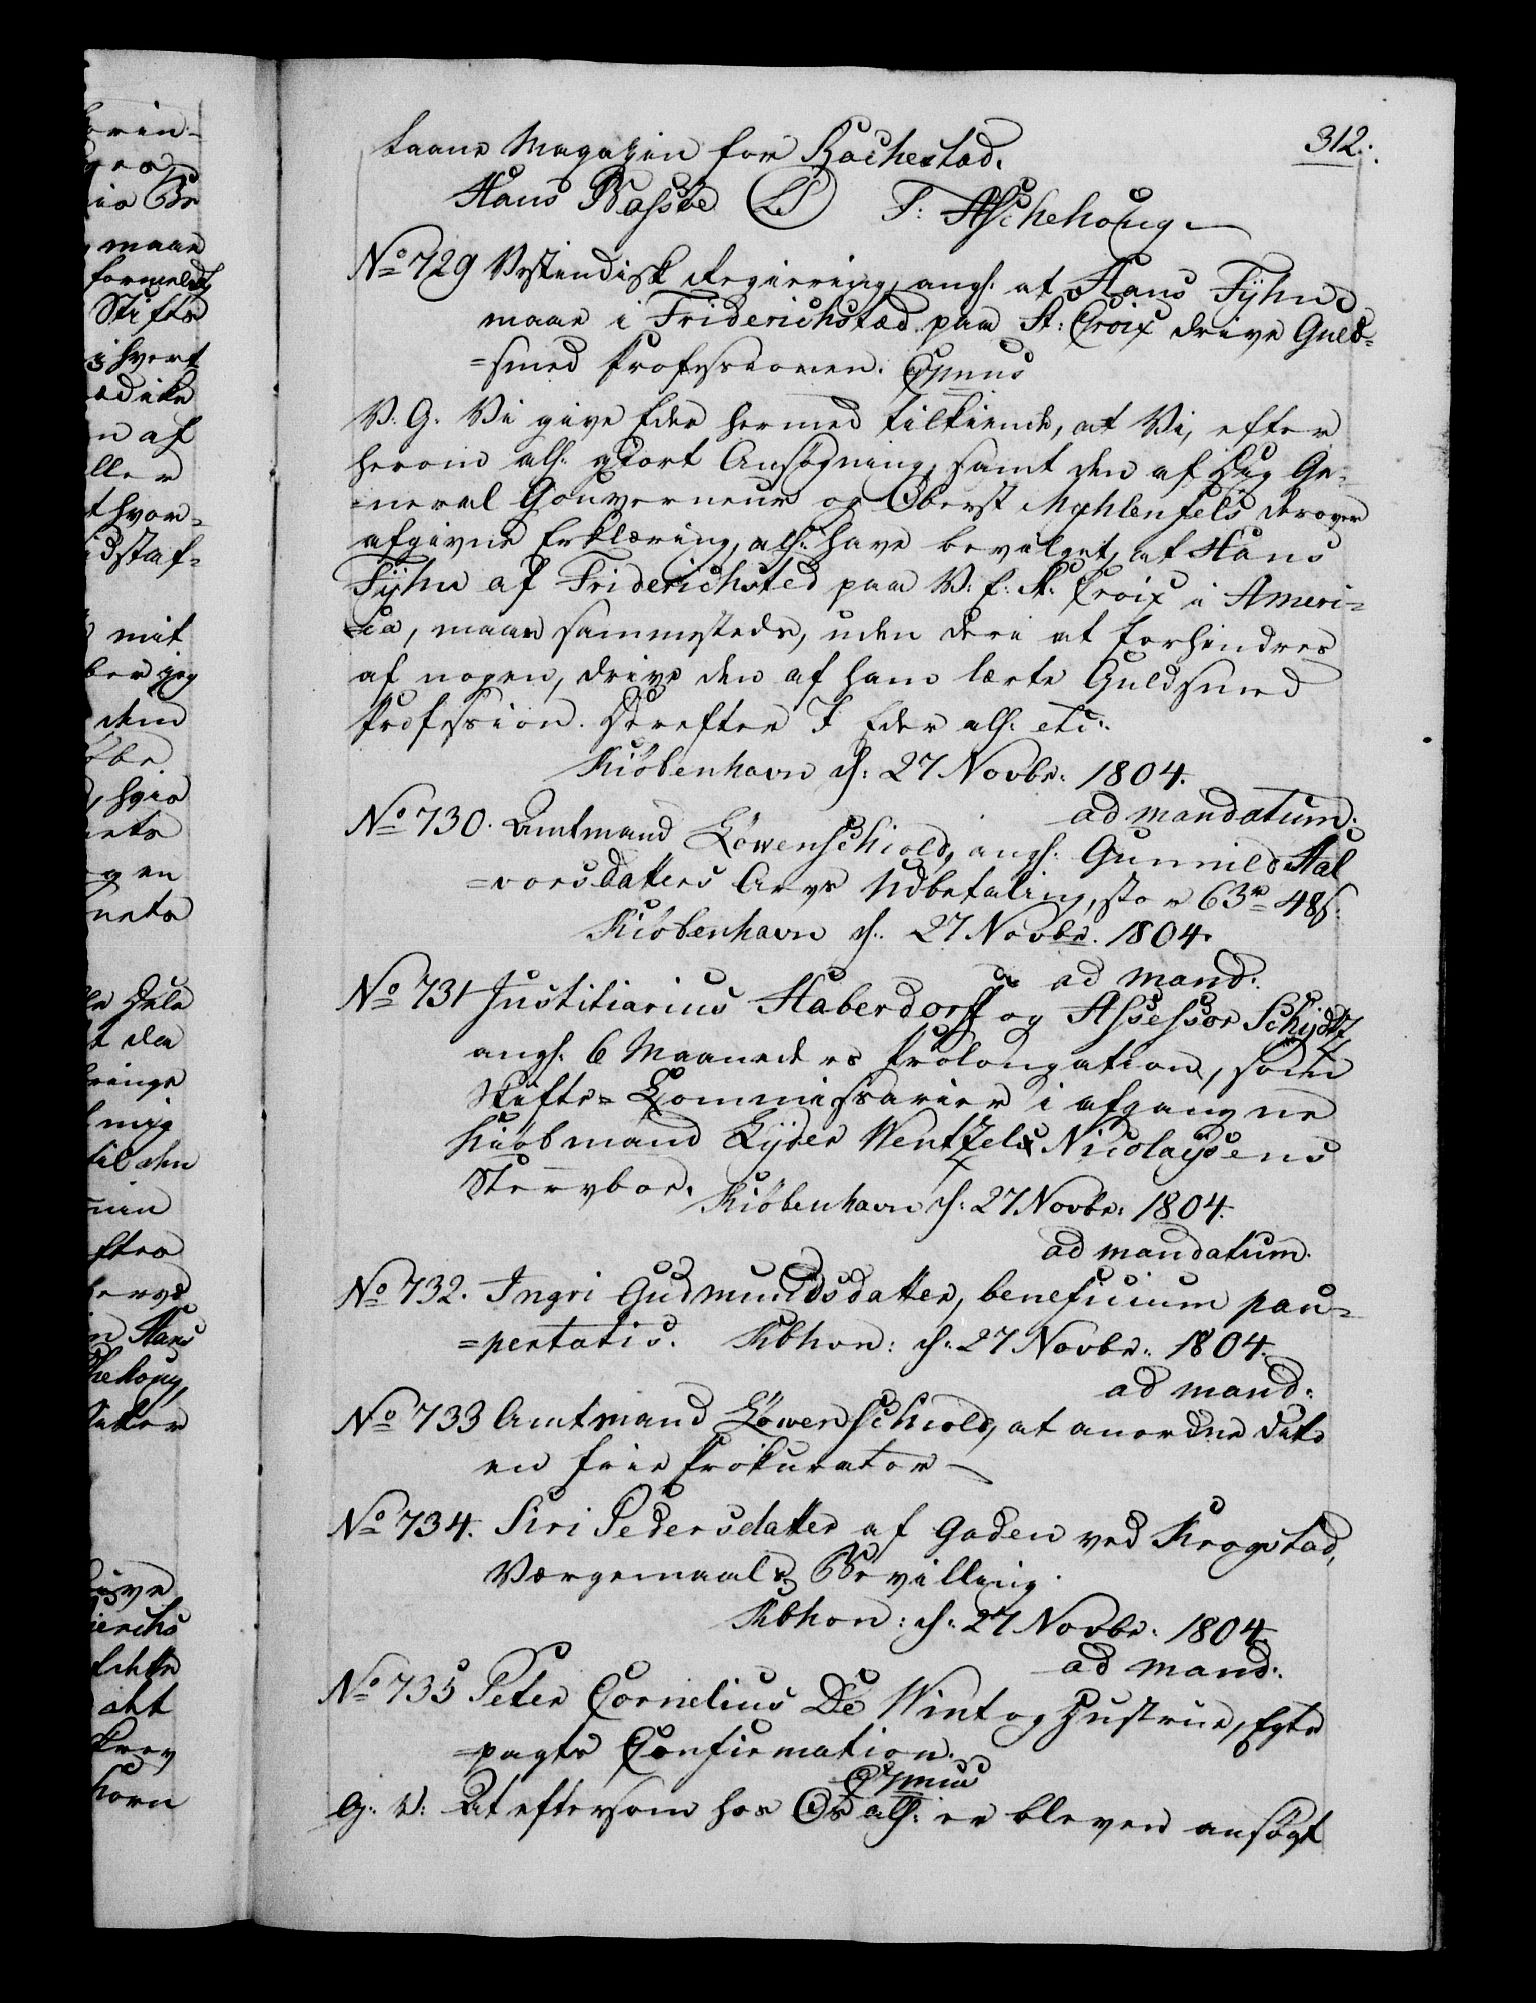 312.
Laane Magazin for Rachestad.
Hans Basse (LS) T: Aschehoug
No 729 Vestindisk Regiering, angl. at Hans Fÿhn
maae i Friderichstæd paa St: Croix drive Guld-
=smed Professionen. Cronus
V. G. Vi give Eder hermed tilkiende, at Vi, efter
herom all. giort Ansøgning, samt den af Dig Ge-
=neral Gouverneur og Oberst Myhlenfels derover
afgivne Erklæring, all. have bevilget, at Hans
Fÿhn af Friderichsted paa V: E: St: Croix i Ameri-
=ca, maae sammestæds, uden deri at forhindres
af nogen, drive den af ham lærte Guldsmed
Profession. Derefter I Eder all. etc:
Kiøbenhavn d: 27 Novbr: 1804.
ad mandatum.
No 730. Amtmand Løwenschiold, angl. Gunnild Hal
=vorsdatters Arvs Udbetaling, stor 63rd 48s.
Kiøbenhavn d: 27 Novbr. 1804.
ad mand:
No 731 Justitiarius Haberdorff og Assessor Schÿdtz
angl. 6 Maaneders Prolongation, som
Skifte= Commissarier i afgangne
Kiøbmand Lÿder Wentzel Nicolaÿsens
Stervboe. Kiøbenhavn d: 27 Novbr: 1804.
ad mandatum.
No 732. Ingri Gudmundsdatter, beneficium pau-
=pertatis. Kbhvn: d: 27 Novbr: 1804.
ad mand:
No 733 Amtmand Løwenschiold, at anordne dito
en frie Prokurator
No 734. Siri Pedersdatter af Gaden ved Krogstad,
Værgemaals Bevilling.
Kbhvn: d: 27 Novbr: 1804.
ad mand:
No 735 Peter Cornelius De Wint og Hustrue, Egte
=pagts Confirmation.
Cronus
G: V: At eftersom hos Os all. er bleven ansøgt